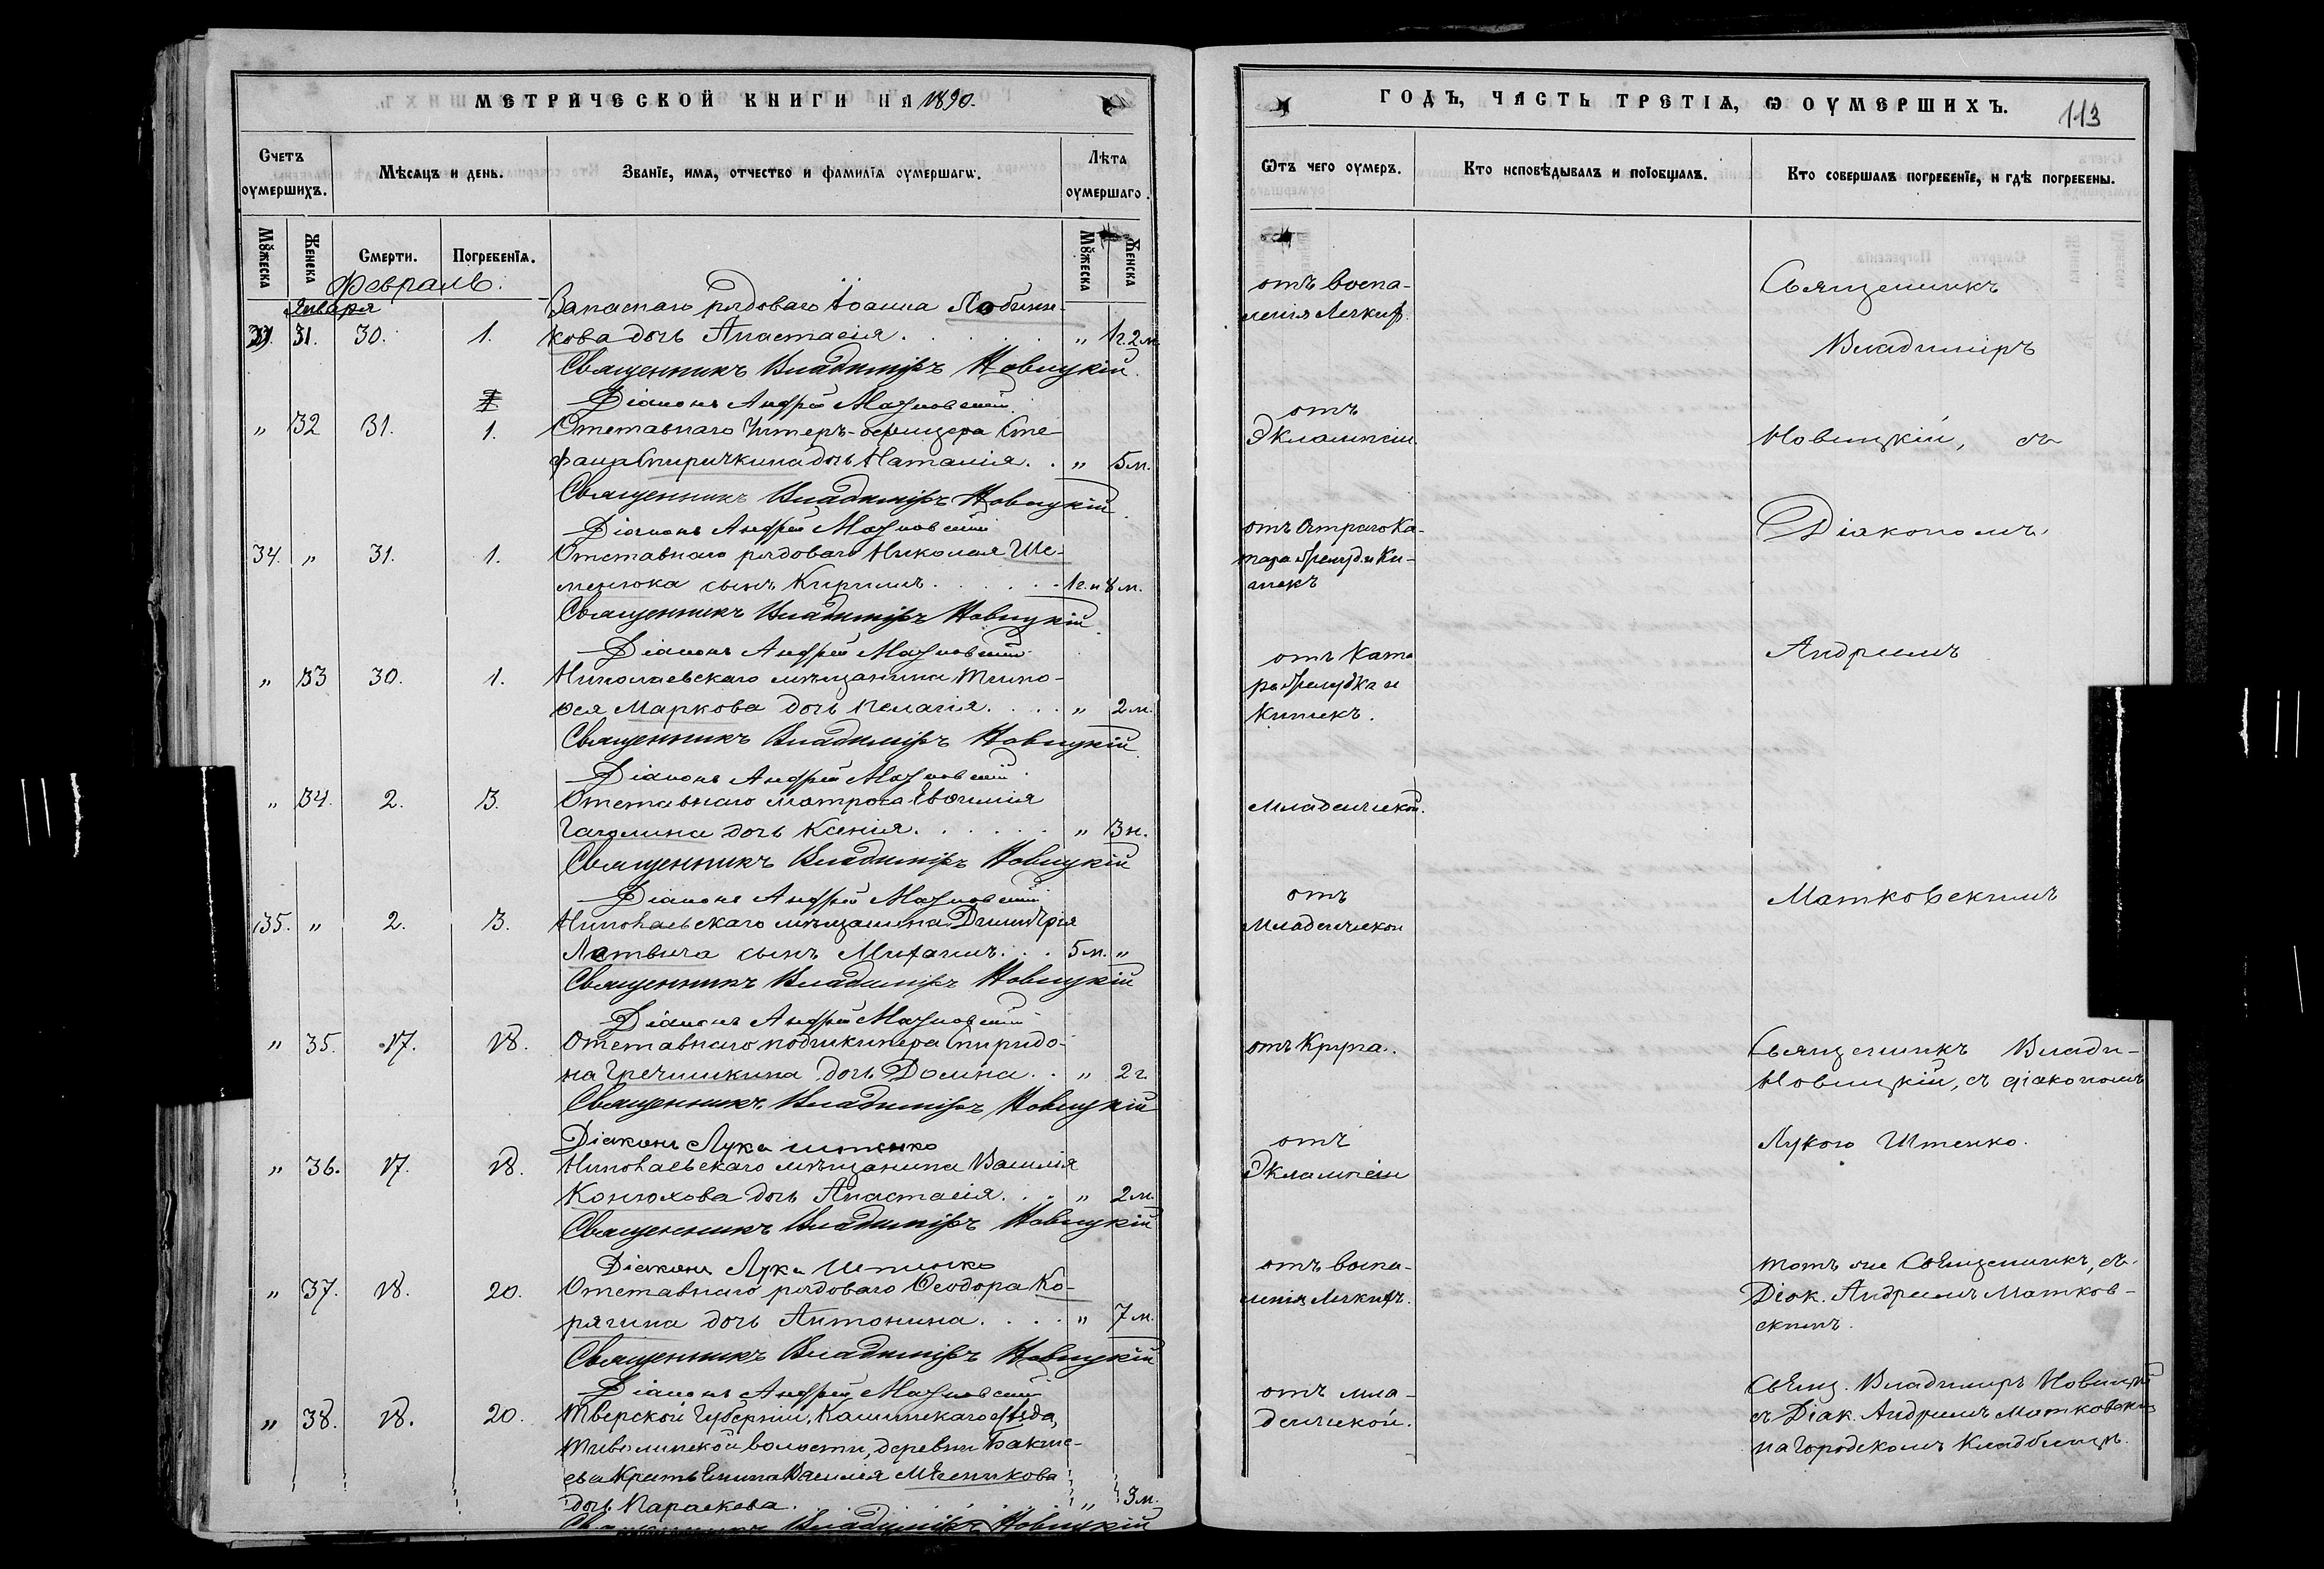 МЕТРИЧЕСКОЙ КНИГИ НА 1890.
Счетъ оумершихъ.
Мѣсяцъ и день.
Званїе, имя, отчество и фамилїя оумершагѡ.
Лѣта оумершаго.
Мꙋжеска
Женска
Смерти.
Погребенїя.
Мꙋжеска
Женска
Февраль.
Января
Запаснаго рядоваго Іоанна Лобини-
31. 30. 1. кова дочь Анастасія. „ 1 г. 2 м.
Священникъ Владиміръ Новицкій.
Діаконъ Андрей Матковскій
„ 32 31. 1. Отставнаго Унтеръ-офицера Сте-
фана Спиричкина дочь Наталія. „ 5 м.
Священникъ Владиміръ Новицкій.
Діаконъ Андрей Матковскій
34. „ 31. 1. Отставнаго рядоваго Николая Ше-
менюка сынъ Кириллъ. 1 г. и 8 м.
Священникъ Владиміръ Новицкій.
Діаконъ Андрей Матковскій
„ 33 30. 1. Николаевскаго мѣщанина Тимо-
ѳея Маркова дочь Пелагія. „ 2 м.
Священникъ Владиміръ Новицкій.
Діаконъ Андрей Матковскій
„ 34. 2. 3. Отставнаго матроса Евѳимія
дочь Ксенія. „ 3 н.
Священникъ Владиміръ Новицкій
Діаконъ Андрей Матковскій
35. „ 2. 3. Николаевскаго мѣщанина Димитрія
сынъ Михаилъ. 5 м. „
Священникъ Владиміръ Новицкій
Діаконъ Андрей Матковскій
„ 35. 17. 18. Отставнаго подшкипера Спиридо-
на Гречишкина дочь Домна. „ 2 г.
Священникъ Владиміръ Новицкій
Діаконъ Лука Штенко
„ 36. 17. 18. Николаевскаго мѣщанина Василія
Конюхова дочь Анастасія. „ 2 м.
Священникъ Владиміръ Новицкій
Діаконъ Лука Штенко
„ 37. 18. 20. Отставнаго рядоваго Ѳеодора Ко-
рягина дочь Антонина. „ 7 м.
Священникъ Владиміръ Новицкій
Діаконъ Андрей Матковскій
„ 38. 18. 20. Тверской Губерніи, Калязинскаго уѣзда,
волости, деревни Бакше-
ева Крестьянина Василія Мясникова
дочь Параскева. „ 3 м.
Священникъ Владиміръ Новицкій
ГОДЪ, ЧАСТЬ ТРЕТІѦ, Ѡ ОУМЕРШИХЪ.
113
Ѿтъ чего оумеръ.
Кто исповѣдывалъ и пріобщалъ.
Кто совершалъ погребенїе, и гдѣ погребены.
отъ воспа-
ленія Легкихъ
Священникъ
Владиміръ
отъ
Эклампсіи.
Новицкій, съ
отъ Остраго Ка-
тара Желуд. и Ки-
шекъ
Діакономъ
отъ Ката
ра Желудка и
Кишекъ.
Андреемъ
Младенческой.
отъ
Младенческой
Матковскимъ
отъ Крупа.
Священникъ Влади-
Новицкій, съ діакономъ
отъ
Эклампсіи
Лукою Штенко.
отъ воспа-
ленія Легкихъ.
тотъ же Священникъ, съ
Діак. Андреемъ Матков-
скимъ.
отъ мла-
денческой.
Свящ. Владиміръ Новицкій
съ Діак. Андреемъ Матковским
на Городскомъ Кладбищѣ.